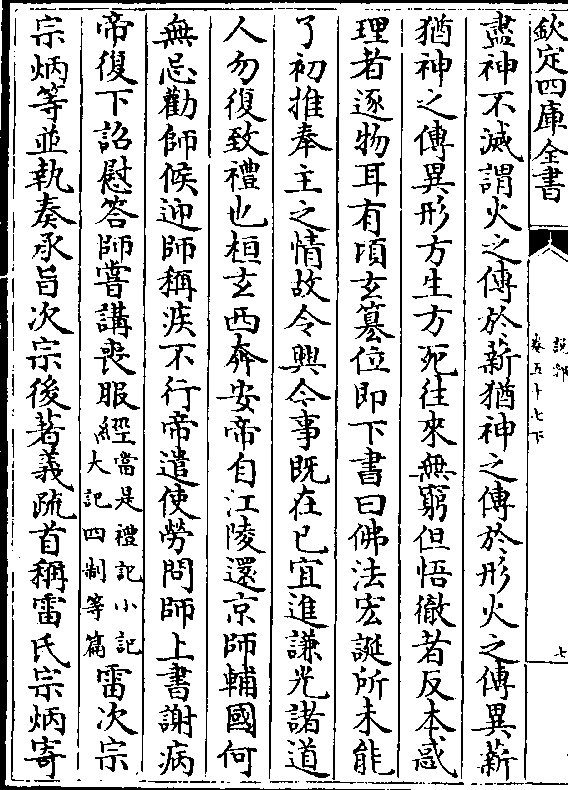 欽定四庫全書
說郛
卷五十七下
七
盡神不滅謂火之傳於薪猶神之傳於形火之傳異薪
猶神之傳異形方生方死往來無窮但悟徹者反本惑
理者逐物耳有頃玄篡位即下書曰佛法宏誕所未能
了初推奉主之情故令興今事既在已宜進謙光諸道
人勿復致禮也桓玄西奔安帝自江陵還京師輔國何
無忌勸師候迎師稱疾不行帝遣使勞問師上書謝病
帝復下詔慰答師嘗講喪服經當是禮記小記大記四制等篇雷次宗
宗炳等並執奏承旨次宗後著義疏首稱雷氏宗炳寄